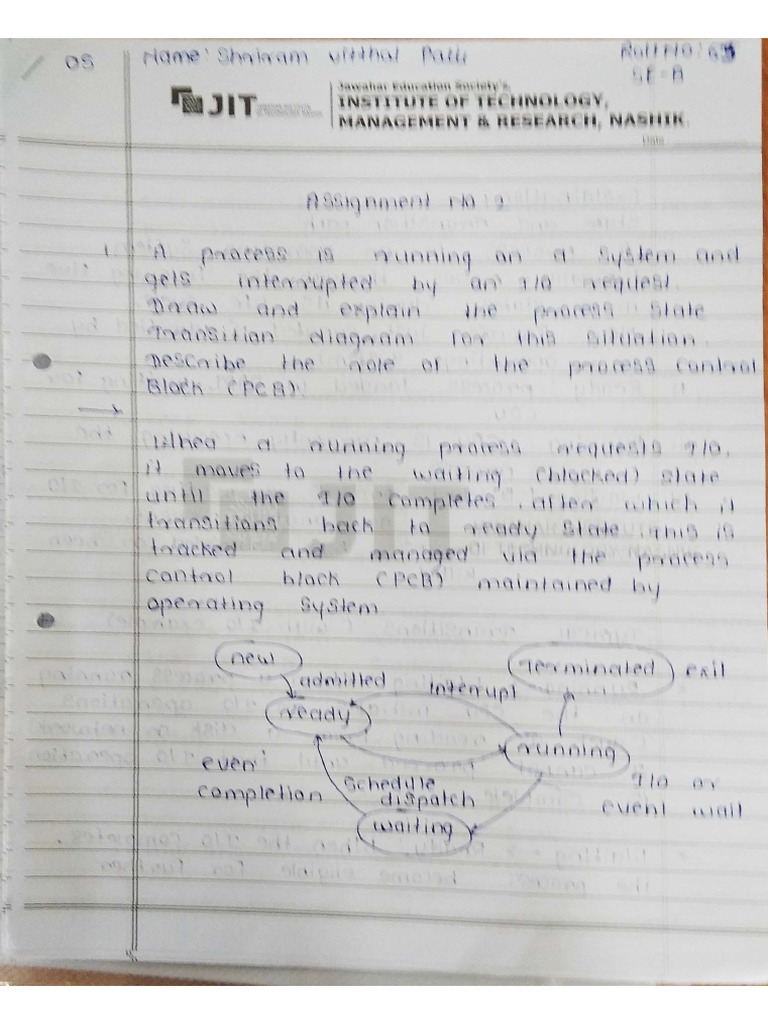 OS Name: Shriram vitthal Patil Roll No: 63
SE-A
JIT
Jawahar Education Society's
INSTITUTE OF TECHNOLOGY,
MANAGEMENT & RESEARCH, NASHIK.
Date
Assignment No 2
1. A process is running on a system and
gets interrupted by an I/O request.
Draw and explain the process state
transition diagram for this situation.
Describe the role of the process control
Block (PCB).
→
When a running process requests I/O,
it moves to the waiting (blocked) state
until the I/O completes, after which it
transitions back to ready state. This is
tracked and managed via the process
control block (PCB) maintained by
operating system
new terminated exit
admitted interrupt
ready
running
even completion
schedule dispatch
I/O or event wait
waiting